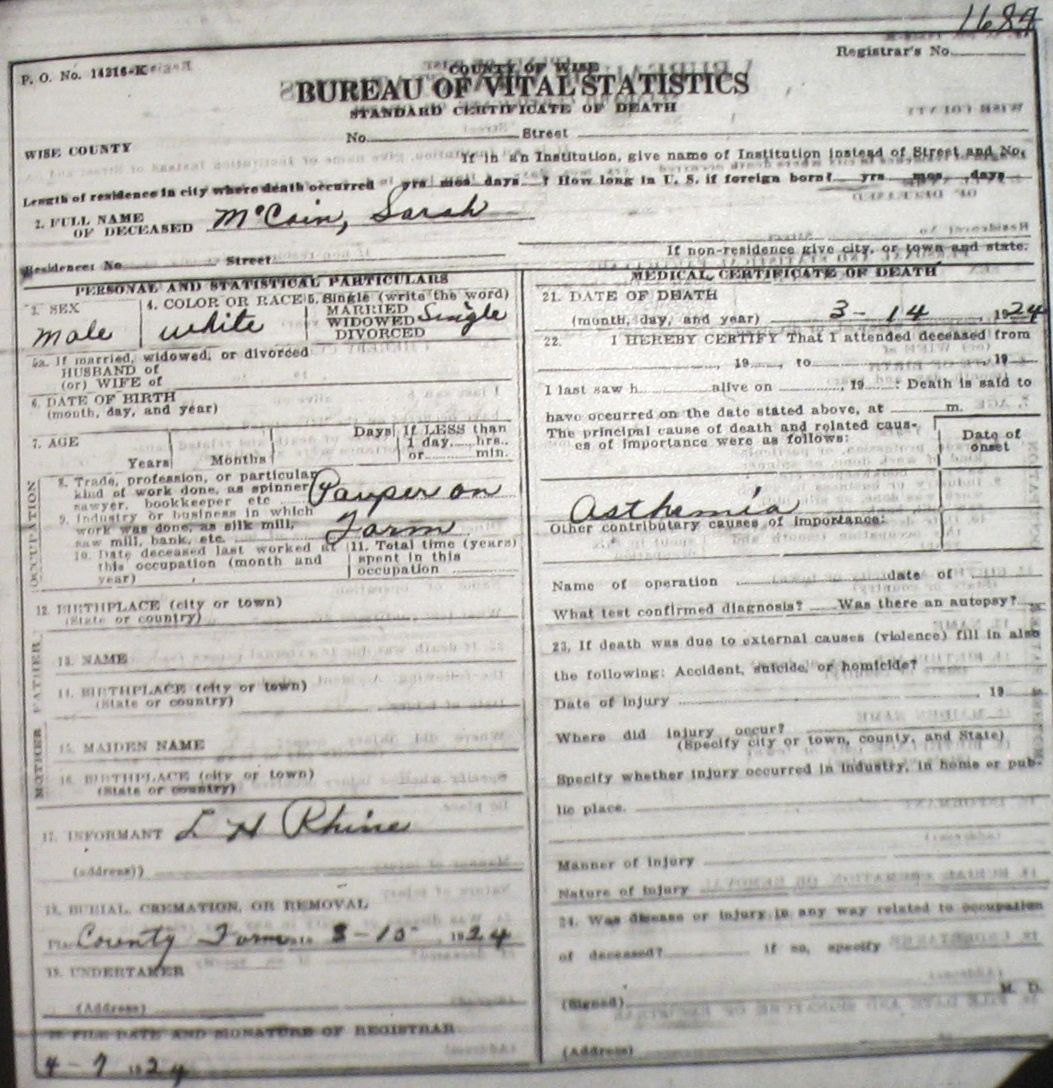 1689
P. O. No. 14216-K
Registrar's No.
COUNTY OF WISE
BUREAU OF VITAL STATISTICS
STANDARD CERTIFICATE OF DEATH
No. Street
WISE COUNTY
If in an Institution, give name of Institution instead of Street and No.
Length of residence in city where death occurred yrs mos days ? How long in U. S. if foreign born? yrs mos. days
2. FULL NAME
OF DECEASED McCain, Sarah
If non-residence give city, or town and state.
Residence: No Street
PERSONAL AND STATISTICAL PARTICULARS
3. SEX
Male
4. COLOR OR RACE
White
5. Single (write the word)
MARRIED
WIDOWED Single
DIVORCED
5a. If married, widowed, or divorced
HUSBAND of
(or) WIFE of
6. DATE OF BIRTH
(month, day, and year)
7. AGE
Years Months Days
If LESS than
1 day, hrs..
or min.
OCCUPATION
8. Trade, profession, or particular
kind of work done, as spinner
sawyer, bookkeeper etc Pauper on
9. Industry or business in which
work was done, as silk mill,
saw mill, bank, etc. Farm
10. Date deceased last worked at
this occupation (month and
year)
11. Total time (years)
spent in this
occupation
12. BIRTHPLACE (city or town)
(State or country)
FATHER
13. NAME
14. BIRTHPLACE (city or town)
(State or country)
MOTHER
15. MAIDEN NAME
16. BIRTHPLACE (city or town)
(State or country)
17. INFORMANT L H Rhine
(address))
18. BURIAL, CREMATION, OR REMOVAL
County Farm 3-15, 1924
19. UNDERTAKER
(Address)
20. FILE DATE AND SIGNATURE OF REGISTRAR
4-7 1924
MEDICAL CERTIFICATE OF DEATH
21. DATE OF DEATH
(month, day, and year) 3-14, 1924
22. I HEREBY CERTIFY That I attended deceased from
, 19 , to , 19
I last saw h alive on , 19 : Death is said to
have occurred on the date stated above, at m.
The principal cause of death and related caus-
es of importance were as follows:
Date of
onset
Asthemia
Other contributary causes of importance:
Name of operation date of
What test confirmed diagnosis? Was there an autopsy?
23, If death was due to external causes (violence) fill in also
the following: Accident, suicide, or homicide?
Date of injury , 19
Where did injury occur?
(Specify city or town, county, and State)
Specify whether injury occurred in industry, in home or pub-
lic place.
Manner of injury
Nature of injury
24. Was disease or injury in any way related to occupation
of deceased? if so, specify
(Signed) M. D.
(Address)